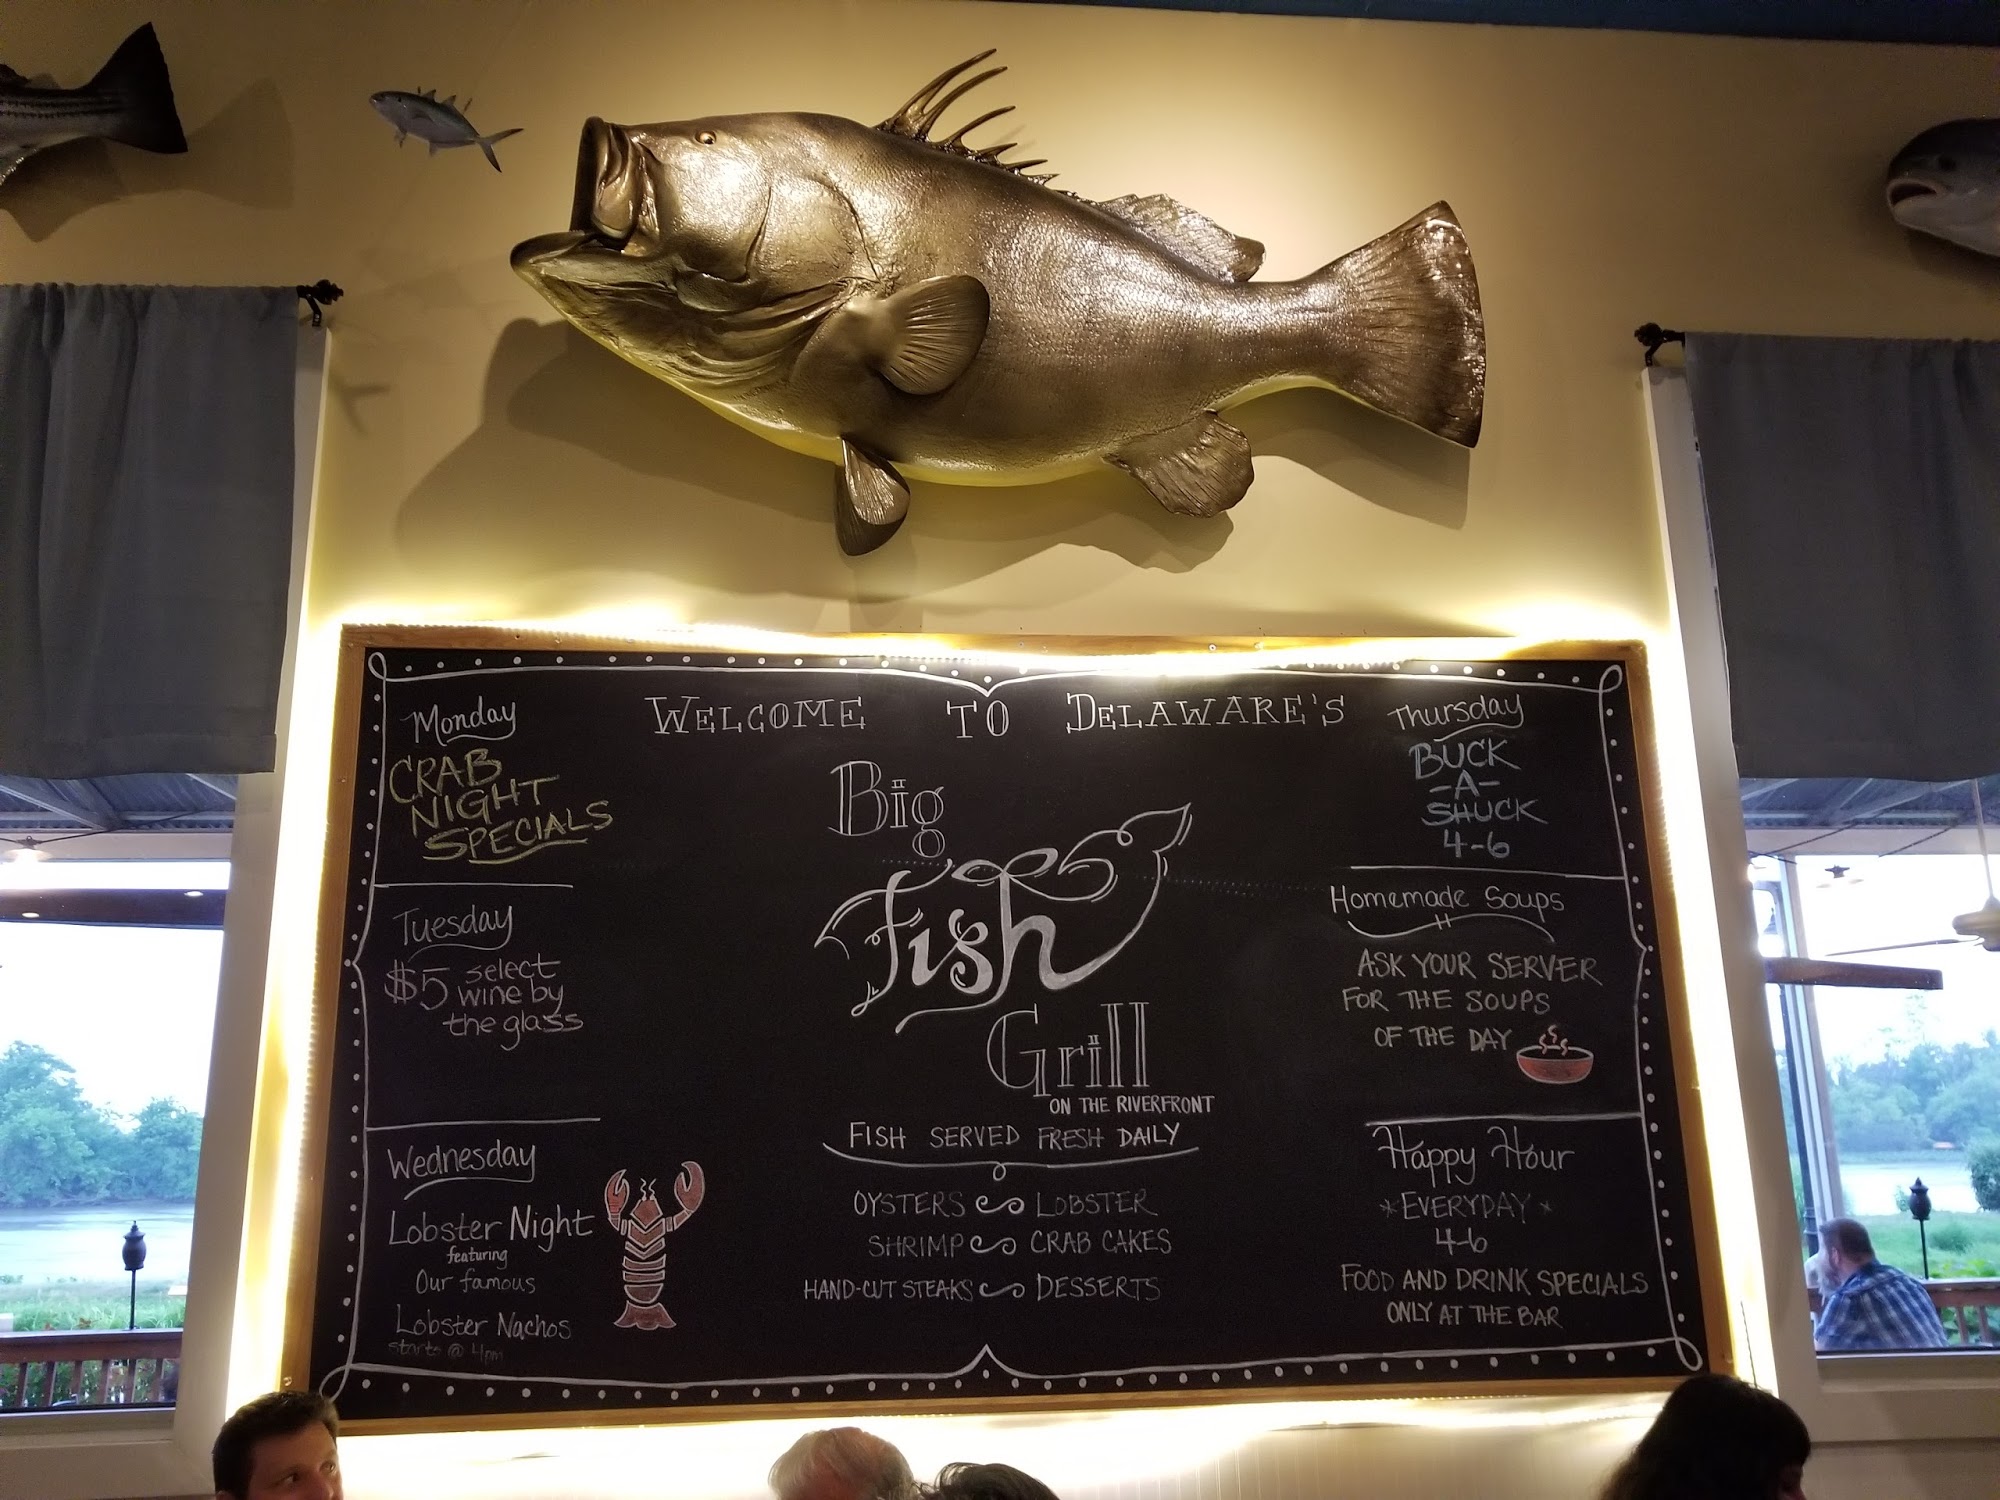 Monday
CRAB
NIGHT
SPECIALS
Tuesday
$5 select
wine by
the glass
Wednesday
Lobster Night
featuring
Our famous
Lobster Nachos
starts @ 4pm
WELCOME TO DELAWARE'S
Big
Fish
Grill
ON THE RIVERFRONT
FISH SERVED FRESH DAILY
OYSTERS LOBSTER
SHRIMP CRAB CAKES
HAND-CUT STEAKS DESSERTS
Thursday
BUCK
-A-
SHUCK
4-6
Homemade Soups
ASK YOUR SERVER
FOR THE SOUPS
OF THE DAY
Happy Hour
*EVERYDAY*
4-6
FOOD AND DRINK SPECIALS
ONLY AT THE BAR